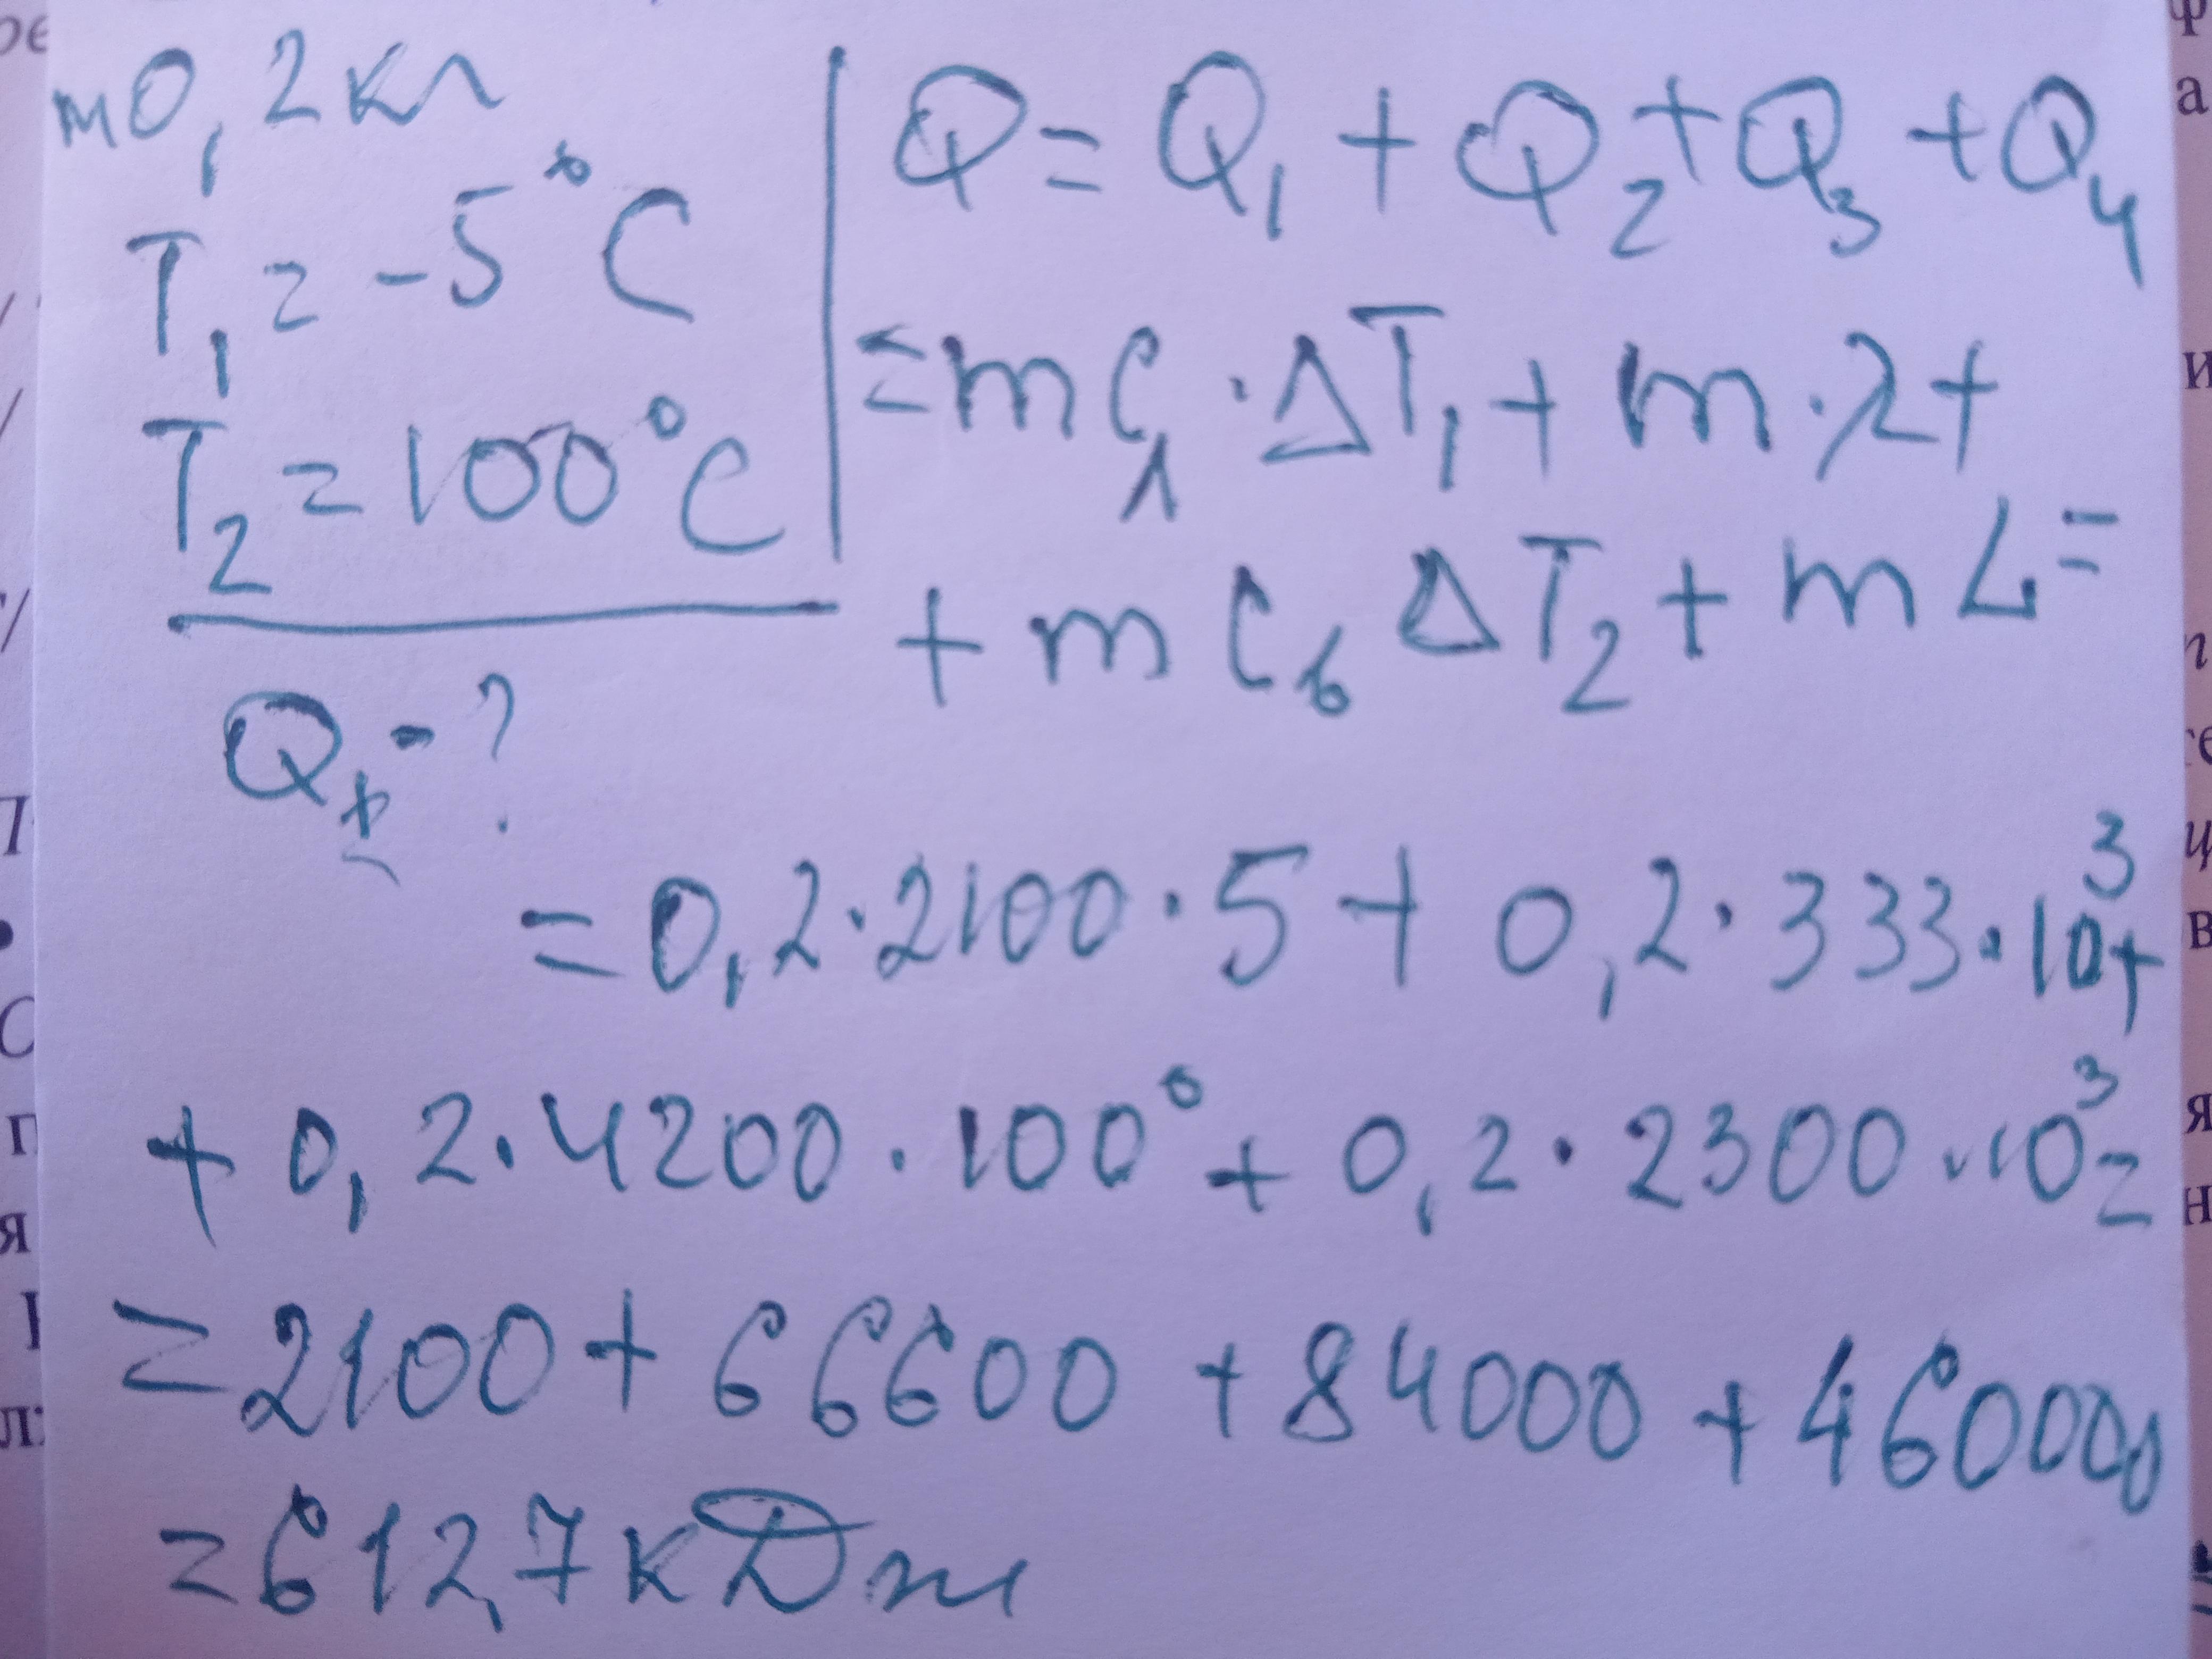 m 0,2 кг
T₁ = -5°C
T₂ = 100°C
Q = Q₁ + Q₂ + Q₃ + Q₄
= m c л · ΔT₁ + m · λ +
+ m c в ΔT₂ + m L =
Q - ?
= 0,2 · 2100 · 5 + 0,2 · 333 · 10³ +
+ 0,2 · 4200 · 100° + 0,2 · 2300 · 10³ =
= 2100 + 66600 + 84000 + 460000
= 612,7 кДж